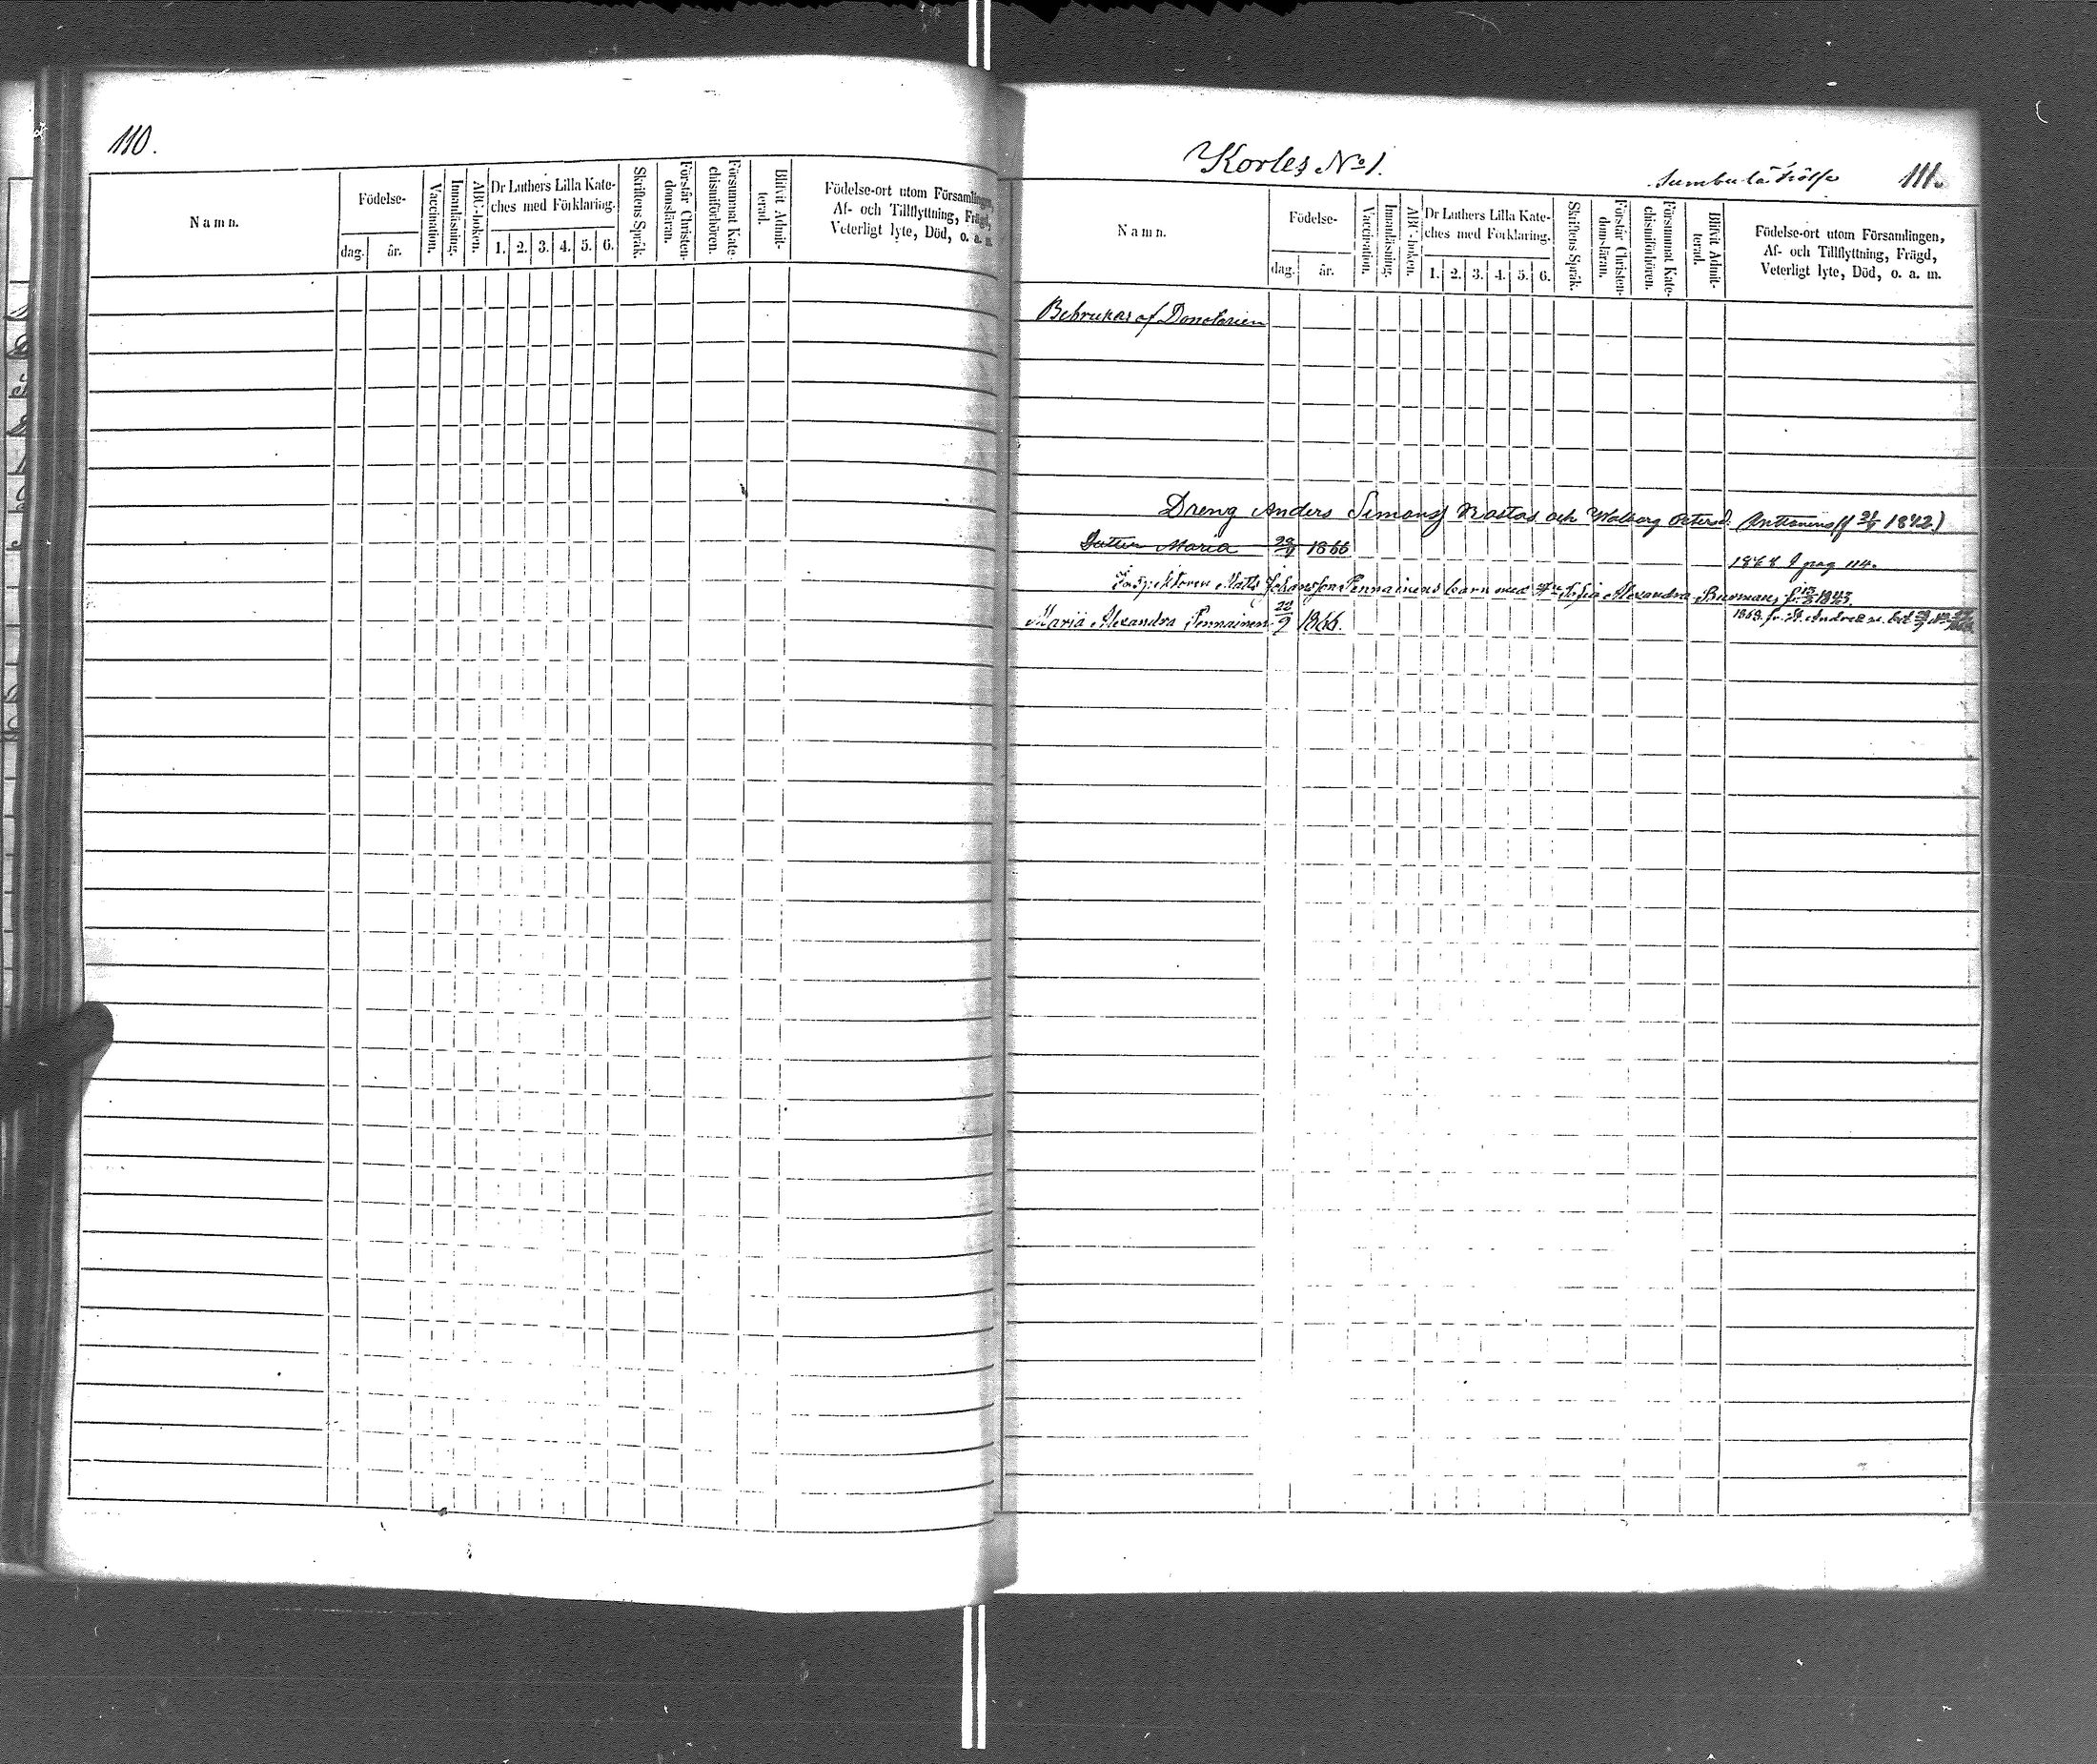 110.
Namn.
Födelse-
dag.
år.
Vaccination.
Innanläsning.
ABC-boken.
Dr Luthers Lilla Kate-
ches med Förklaring.
1. 2. 3. 4. 5. 6.
Skriftens Språk.
Förstår Christen-
domsläran.
Försummat Kate-
chismiförhören.
Blifvit Admit-
terad.
Födelse-ort utom Församlingen,
Af- och Tillflyttning, Frägd,
Veterligt lyte, Död, o. a. m.
Korles No 1.
111.
Namn.
Födelse-
dag.
år.
Vaccination.
Innanläsning.
ABC-boken.
Dr Luthers Lilla Kate-
ches med Förklaring.
1. 2. 3. 4. 5. 6.
Skriftens Språk.
Förstår Christen-
domsläran.
Försummat Kate-
chismiförhören.
Blifvit Admit-
terad.
Födelse-ort utom Församlingen,
Af- och Tillflyttning, Frägd,
Veterligt lyte, Död, o. a. m.
Bebrukas af Donatarien
Dreng Anders Simonsf Rastas och Walborg Petersd. 1842)
Maria 1866
pag 114.
Inspektoren Matts Johansson Pennainens barn med Sofia Alexandra 1843.
Maria Alexandra Pennainen 22/9 1866.
1868 fr. St. Andreæ